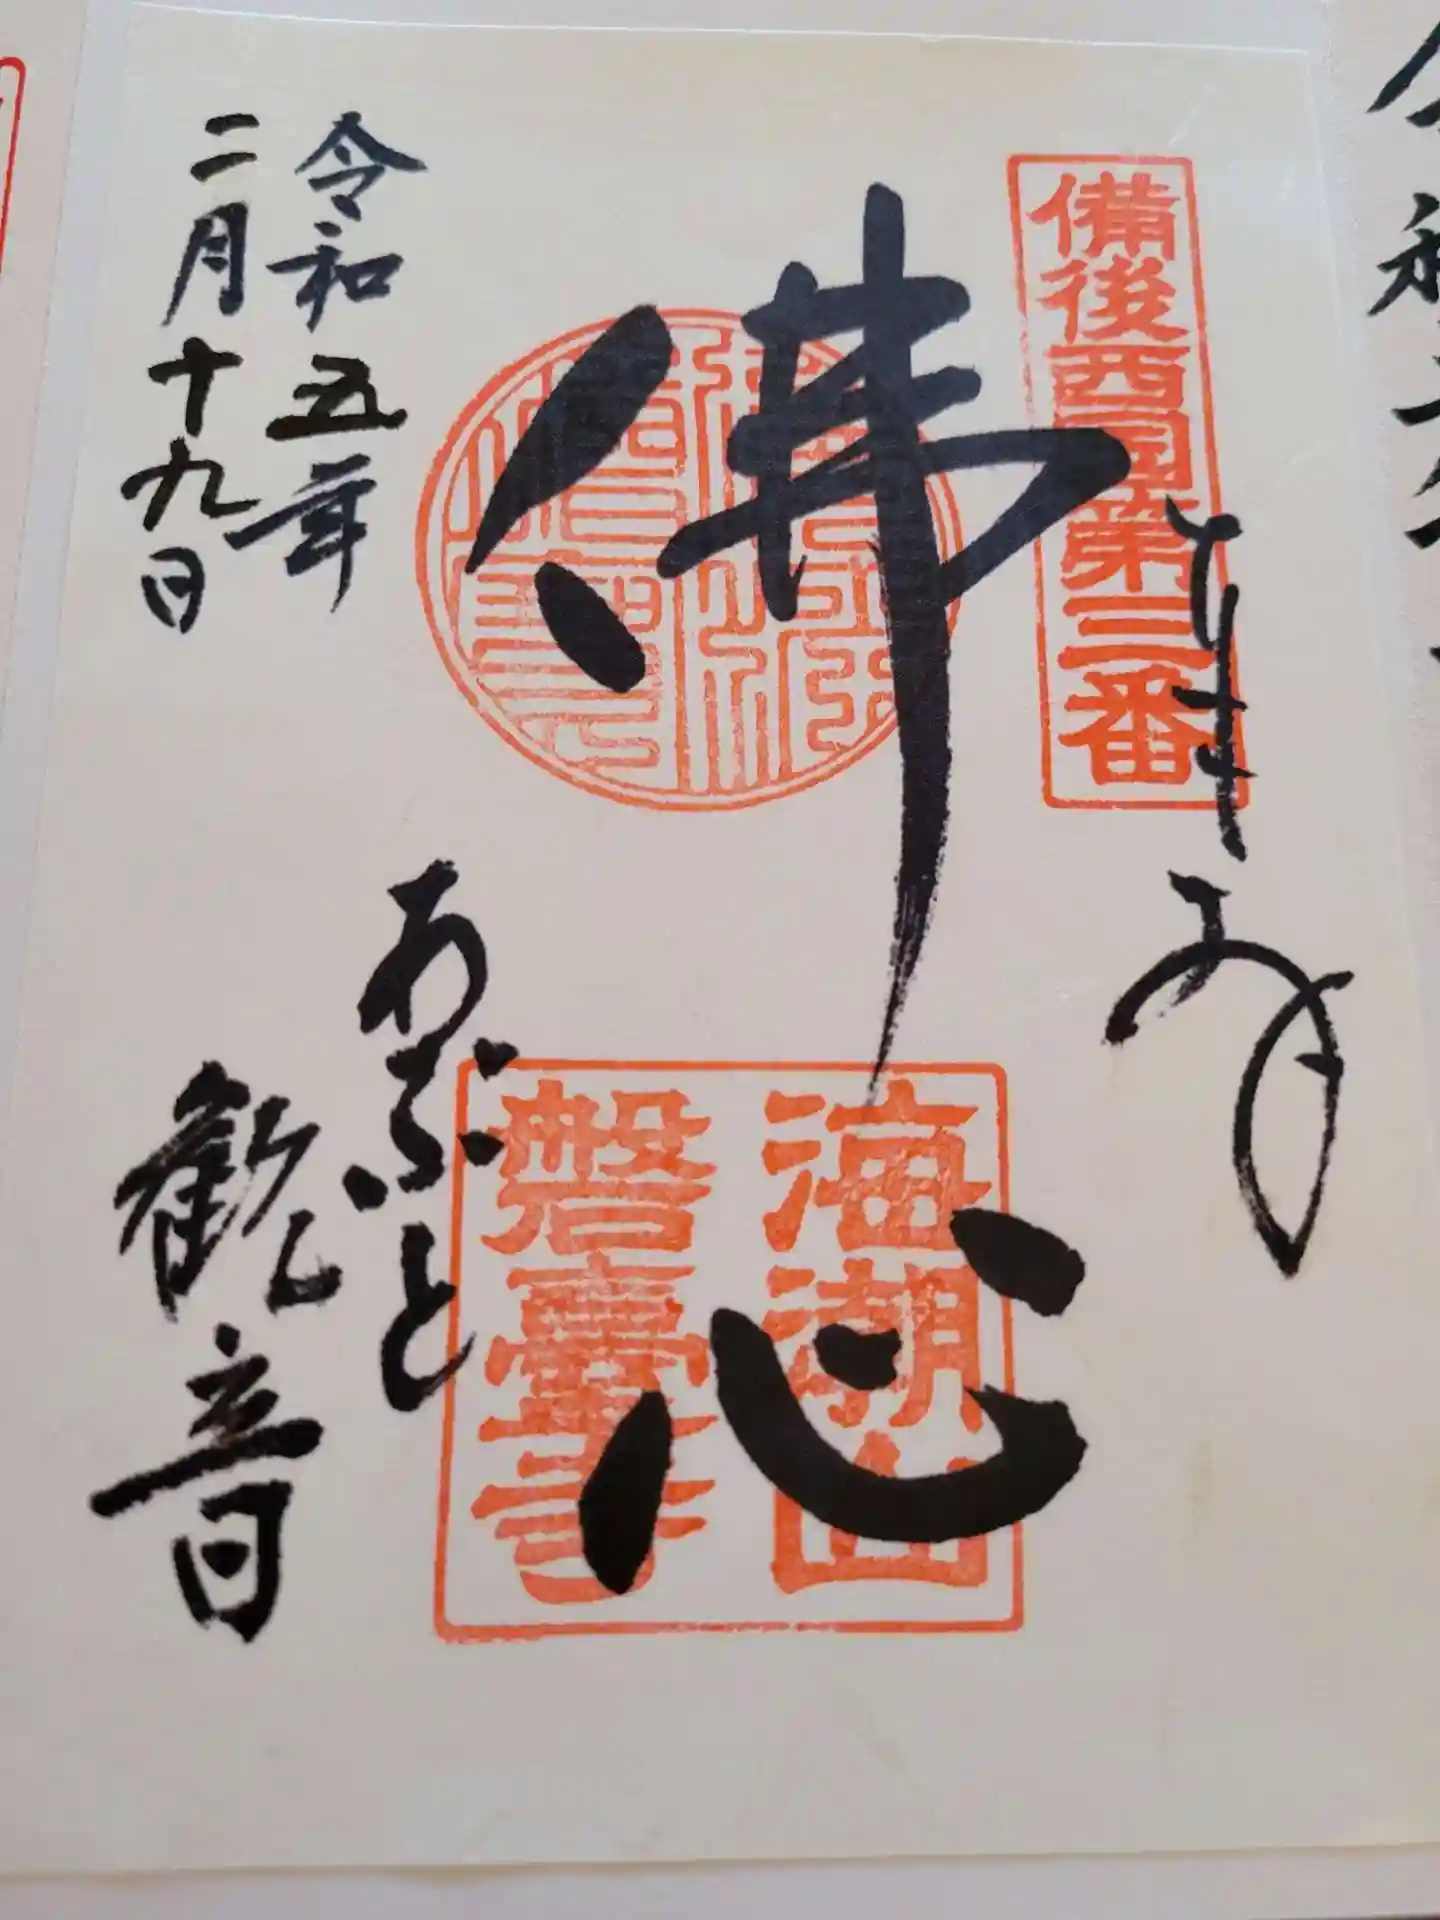 備後西國第三番
奉拜
佛心
海潮山
磐臺寺
あぶと
観音
令和五年
二月十九日